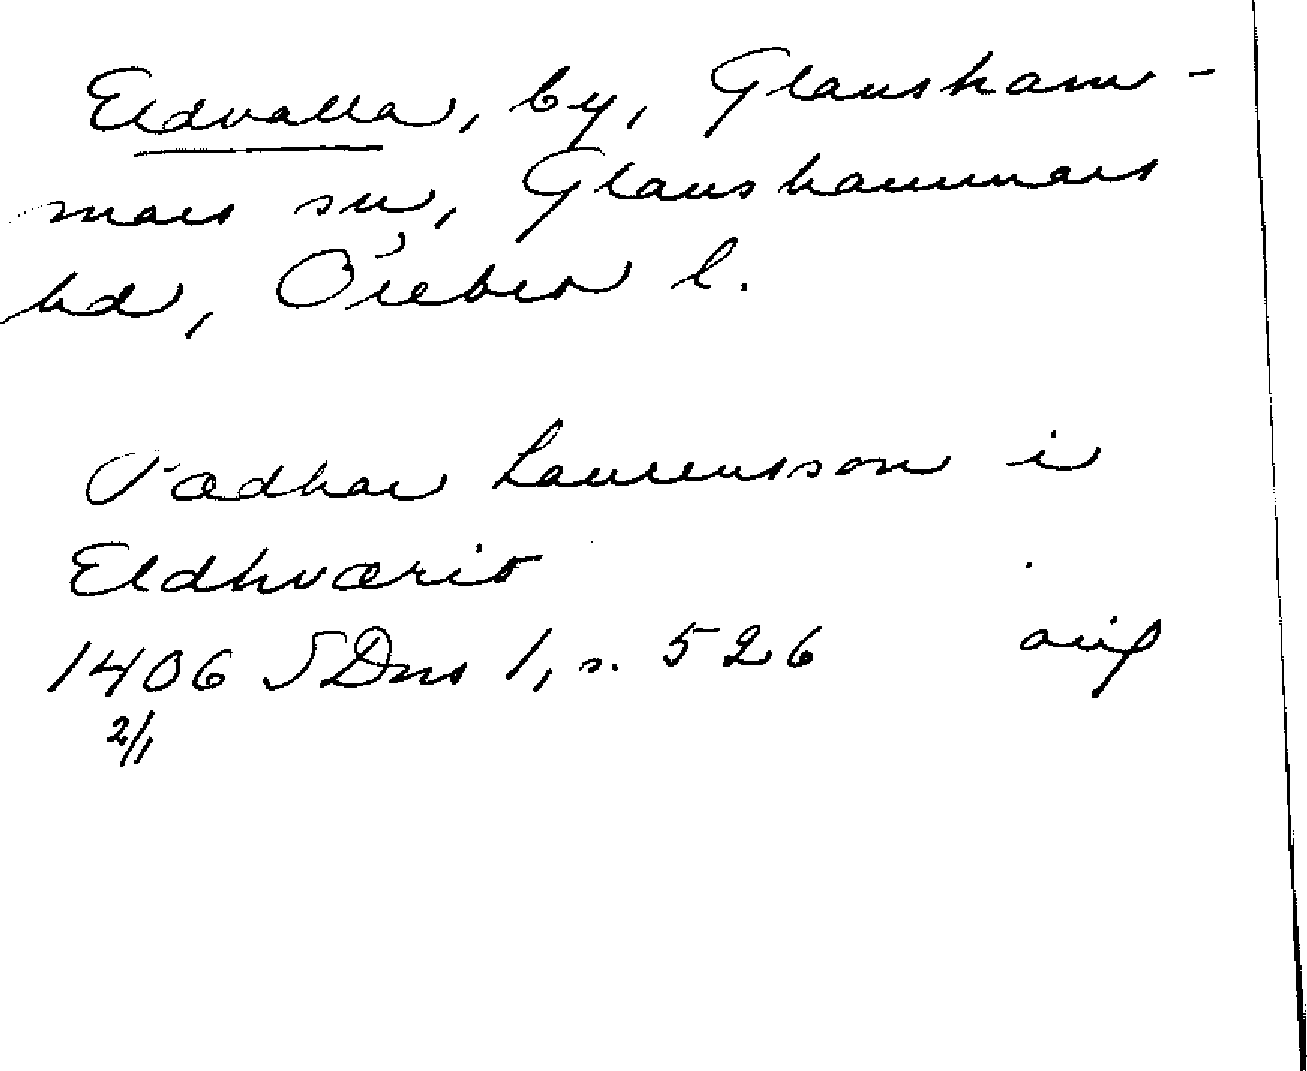 Eldvalla, by, Glansham-
mars sn, Glanshammars
hd, Örebro l.
Padhar Laurensson i
Eldhværio
1406 SDns 1, s. 526 avig
2/1